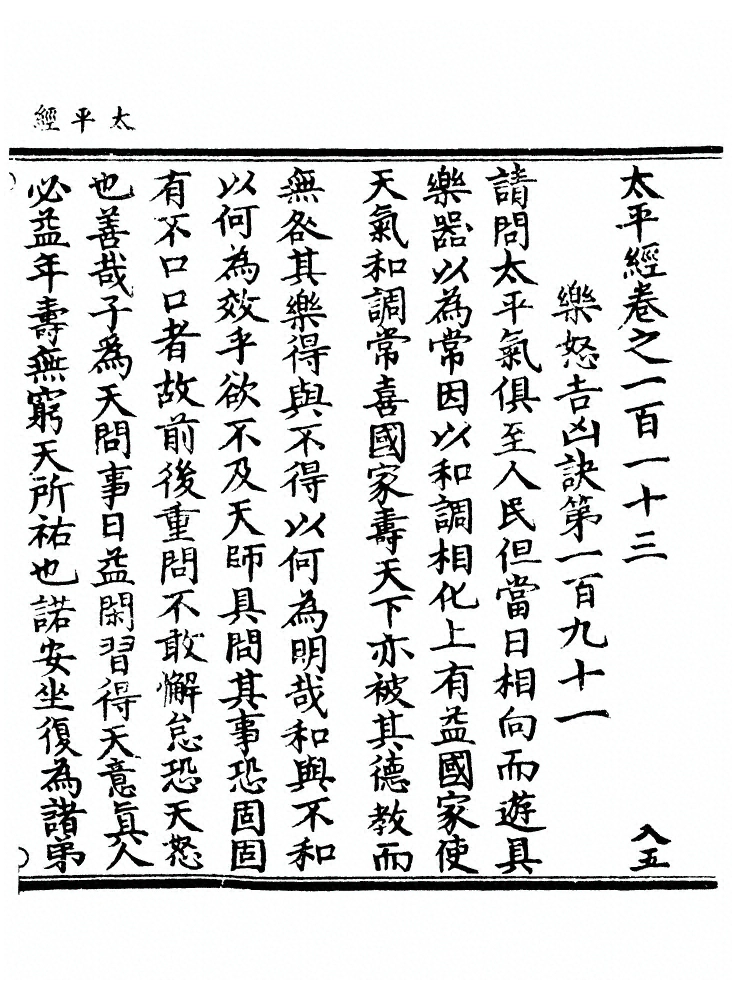 太平經
太平經卷之一百一十三
入五
樂怒吉凶訣第一百九十一
請問太平氣俱至人民但當日相向而遊具
樂器以為常因以和調相化上有益國家使
天氣和調常喜國家壽天下亦被其德教而
無咎其樂得與不得以何為明哉和與不和
以何為效乎欲不及天師具問其事恐固固
有不口口者故前後重問不敢懈怠恐天怒
也善哉子為天問事日益閑習得天意真人
必益年壽無窮天所祐也諾安坐復為諸弟